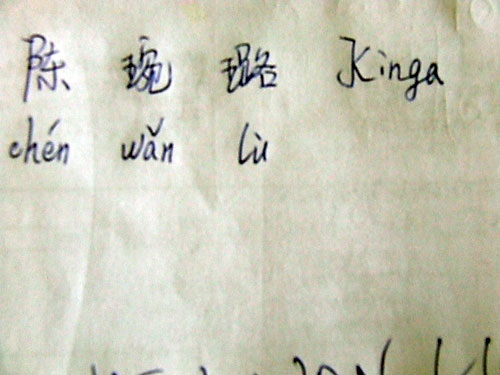 陈 琬 璐 Kinga
chén wǎn lù